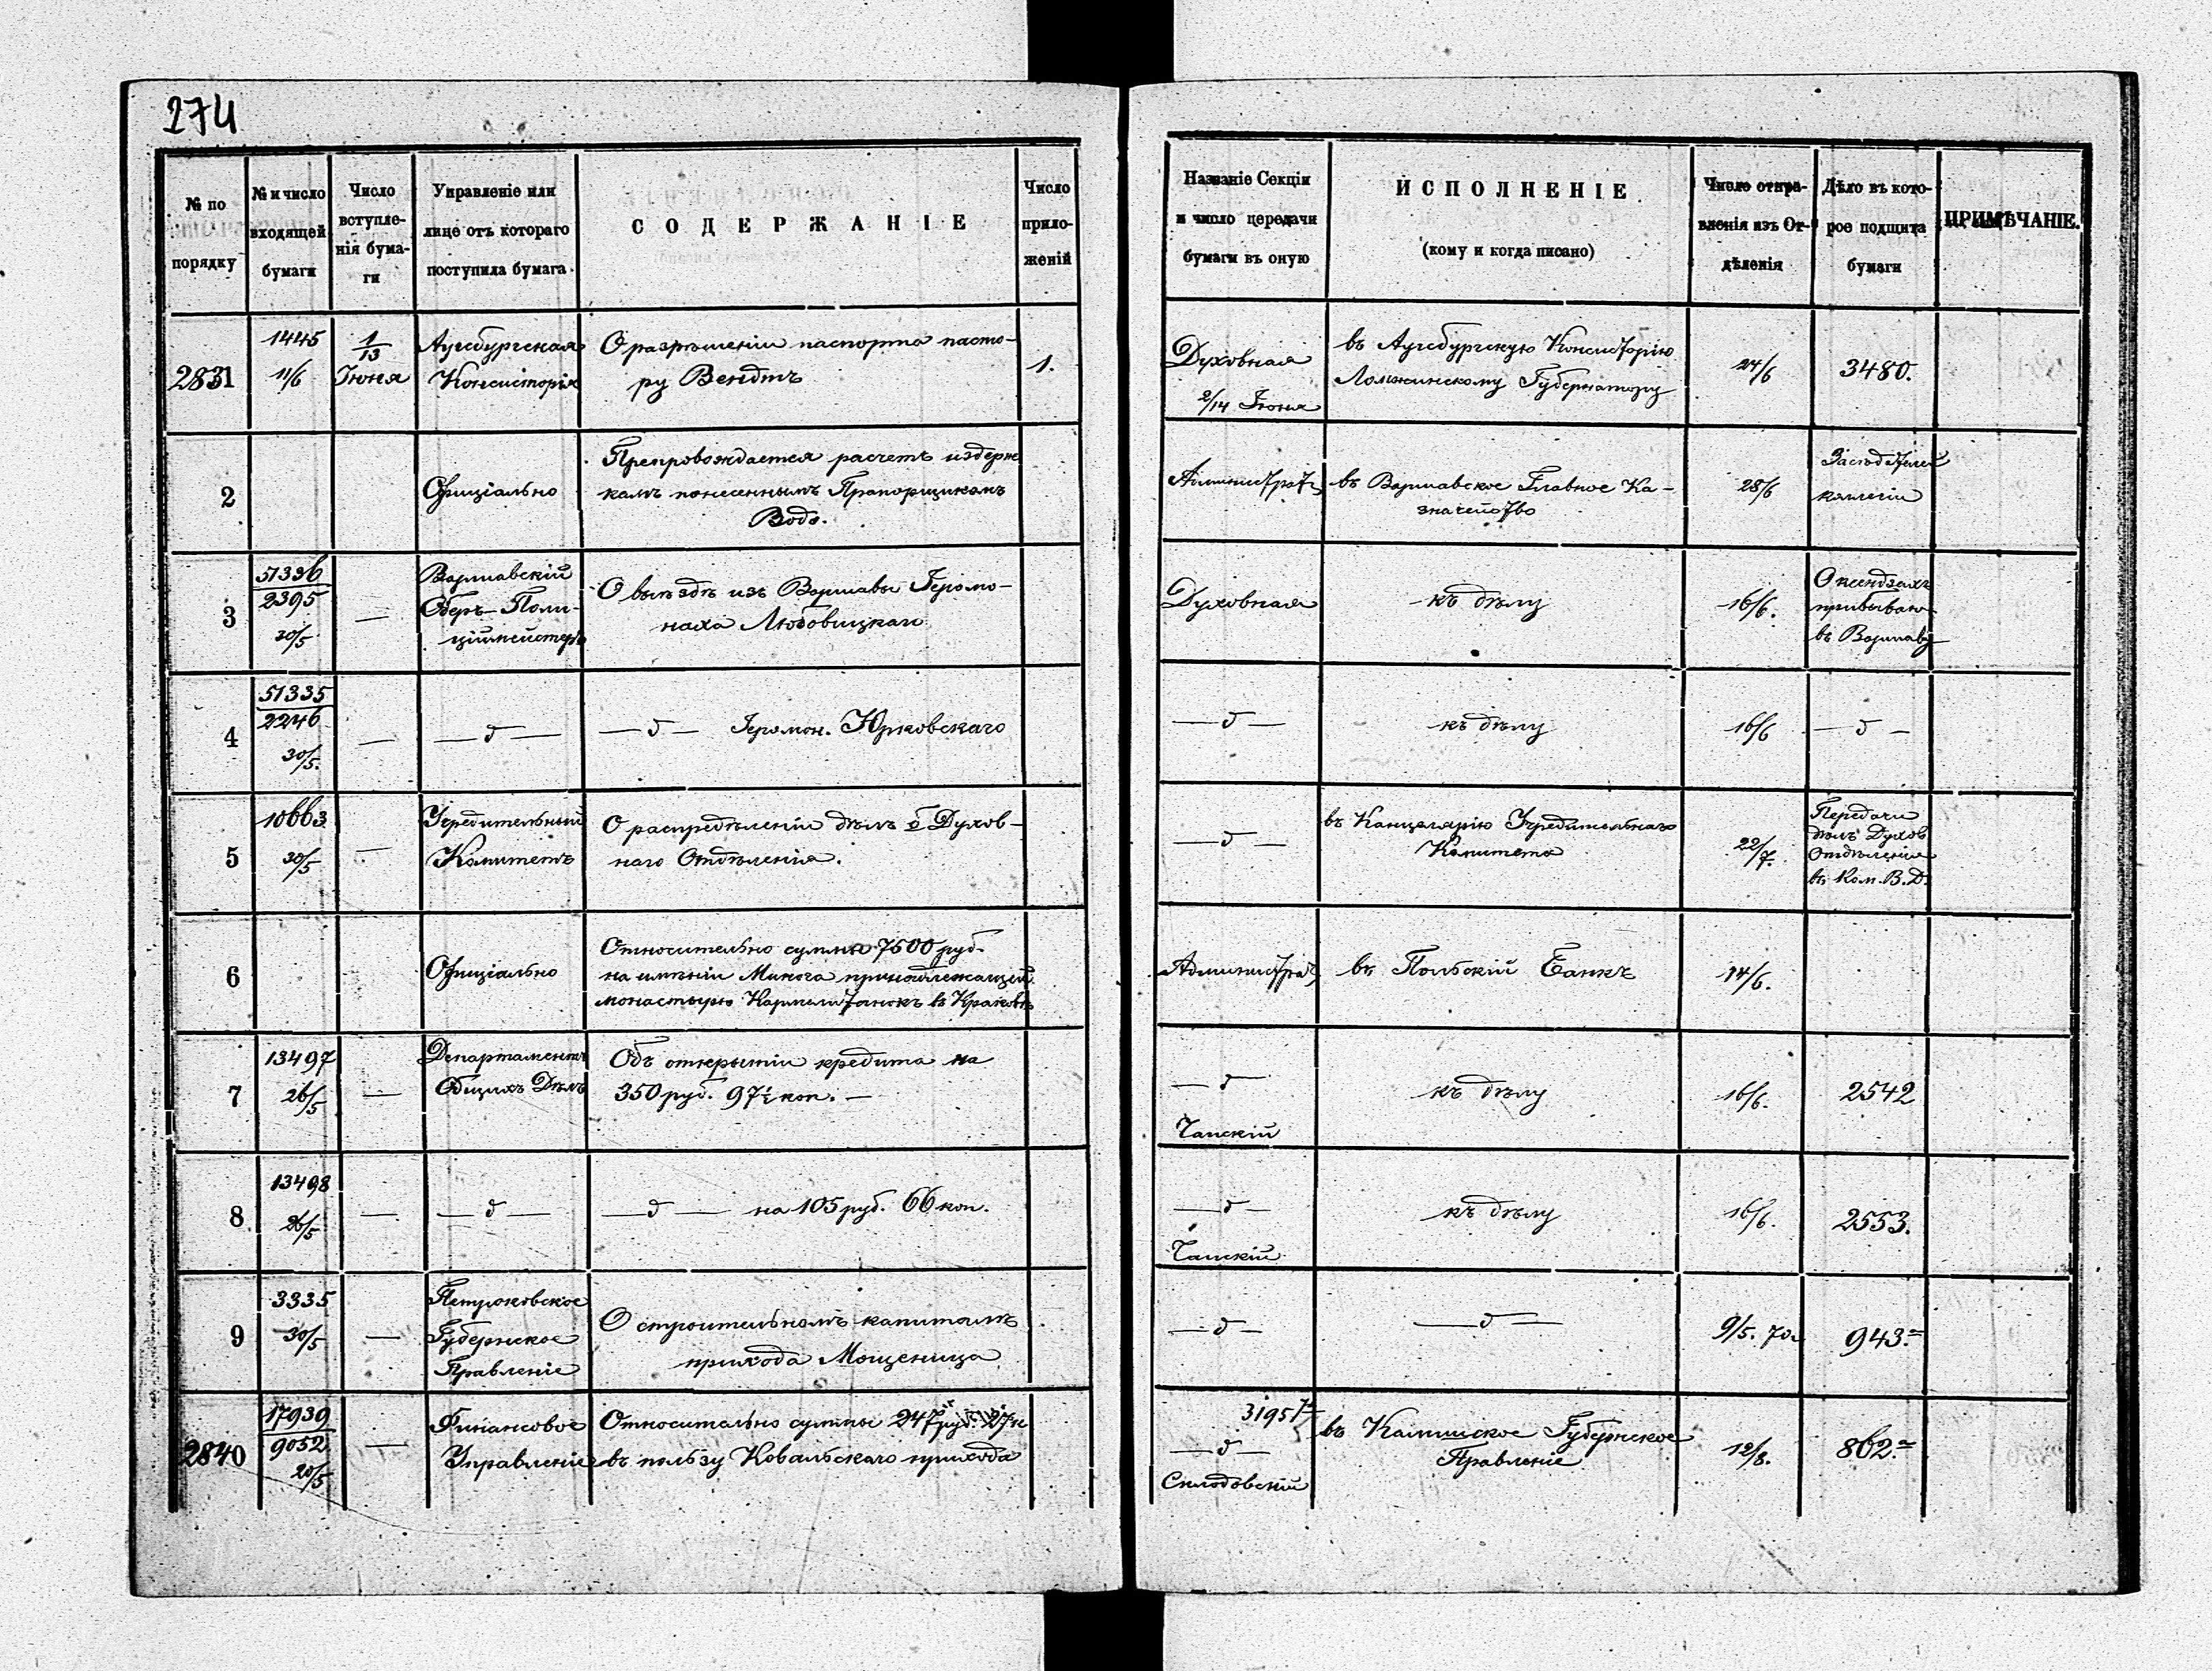 274
№ по порядку
№ и число входящей бумаги
Число вступле-нія бума-ги
Управленіе или лице отъ котораго поступила бумага
СОДЕРЖАНІЕ
Число прило-женій
Названіе Секціи и число передачи бумаги въ оную
ИСПОЛНЕНІЕ
(кому и когда писано)
Число отпра-вленія изъ От-дѣленія
Дѣло въ кото-рое подшита бумаги
ПРИМѢЧАНІЕ.
2831
1445
11/6
1/13
Іюня
Аугсбургская
Консисторія
О разрѣшеніи паспорта пасто-
ру Вендтъ
1.
Духовная
2/14 Іюня
въ Аугсбургскую Консисторію
Ломжинскому Губернатору
24/6
3480.
2
Офиціально
Препровождается расчетъ издерж
камъ понесеннымъ Прапорщикомъ
Водо.
въ Варшавское Главное Ка-
значейство
28/6
коллегіи
3
51336
2395
30/5
—
Варшавскій
Оберъ-Поли-
ціймейстеръ
О выѣздѣ изъ Варшавы Іеромо-
наха Любовицкаго
Духовная
къ дѣлу
16/6.
О ксендзахъ
прибываю-
въ Варшаву
4
51335
2246
30/5.
—
— д —
— д — Іеромон. Юрковскаго
— д —
къ дѣлу
16/6
— д —
5
10663
30/5
—
Учредительный
Комитетъ
О распредѣленіи дѣлъ б. Духов-
наго Отдѣленія.
— д —
въ Канцелярію Учредительнаго
Комитета
22/7.
Передачи
дѣлъ Духов
Отдѣленія
въ Ком. В. Д.
6
Офиціально
Относительно суммы 7500 руб.
на имѣніи Минога принадлежащей
монастырю Кармелитанокъ въ Краковѣ
въ Польскій Банкъ
14/6.
7
13497
26/5
—
Департаментъ
Общихъ Дѣлъ
Объ открытіи кредита на
350 руб. 97½ коп. —
— д —
Чапскій
къ дѣлу
16/6.
2542
8
13498
26/5
—
— д —
— д — на 105 руб. 66 коп.
— д —
Чапскій
къ дѣлу
16/6.
2553.
9
3335
30/5
—
Петроковское
Губернское
Правленіе
О строительномъ капиталѣ
прихода Мощеница
— д —
— д —
9/5. 70 г.
943.
2840
17939
9052
20/5
—
Финансовое
Управленіе
Относительно суммы 247 руб. 27 к
въ пользу Ковальскаго прихода
31951
— д —
Склодовскій
въ Калишское Губернское
Правленіе
12/8.
862.